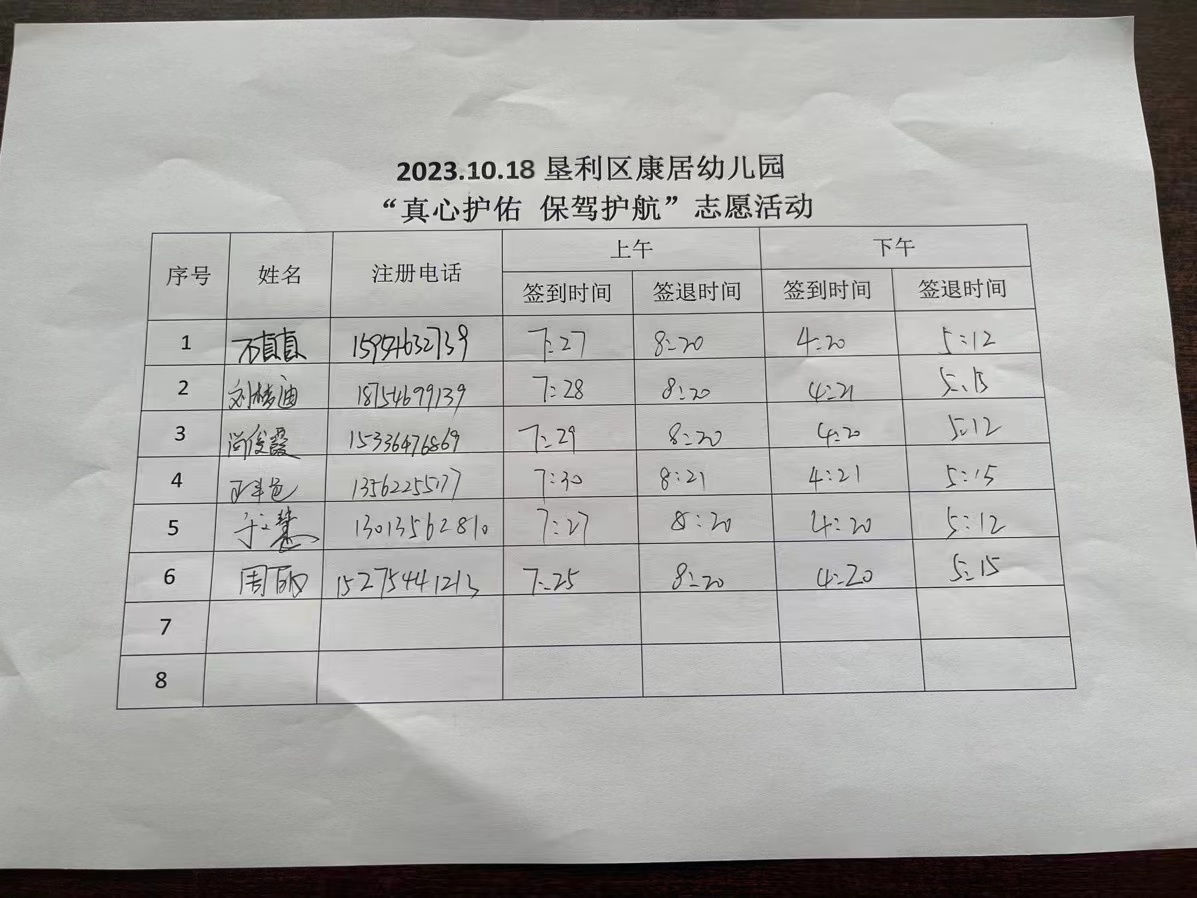 2023.10.18 垦利区康居幼儿园
“真心护佑 保驾护航”志愿活动
序号 姓名 注册电话 上午 下午
签到时间 签退时间 签到时间 签退时间
1 真真 15954632739 7:27 8:20 4:20 5:12
2 刘梦迪 18754699139 7:28 8:20 4:21 5:15
3 尚俊霞 15336476869 7:29 8:20 4:20 5:12
4 7:30 8:21 4:21 5:15
5 于文慧 13013562810 7:27 8:20 4:20 5:12
6 周丽 15275441213 7:25 8:20 4:20 5:15
7
8